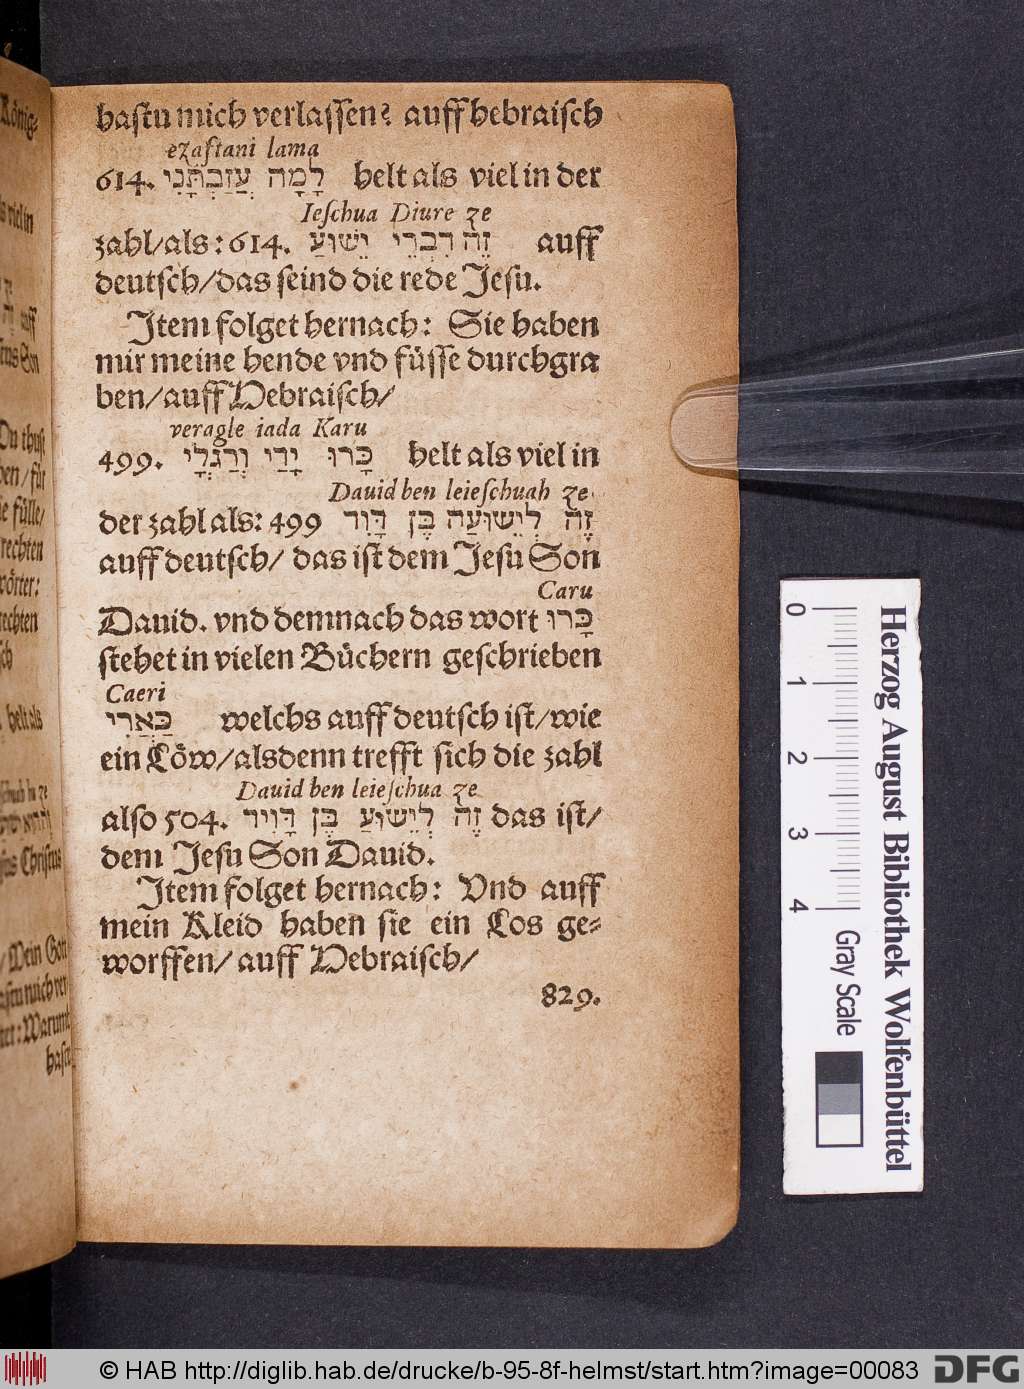 hastu mich verlassen? auff hebraisch
ezastani lama
614. לָמָה עֲזַבְתָּנִי helt als viel in der
Ieschua Diure ze
zahl/als: 614. זֶה דִבְרֵי יֵשׁוּעַ auff
deutsch/das seind die rede Jesu.
Item folget hernach: Sie haben
mir meine hende vnd füsse durchgra
ben/auff Hebraisch/
veragle iada Karu
499. כָּרוּ יָדַי וְרַגְלָי helt als viel in
Dauid ben leieschuah ze
der zahl als: 499 זֶה לְיֵשׁוּעַה בֶּן דָּוִד
auff deutsch/ das ist dem Jesu Son
Caru
Dauid. vnd demnach das wort כָּרוּ
stehet in vielen Büchern geschrieben
Caeri
כַּאֲרִי welchs auff deutsch ist/wie
ein Löw/alsdenn trefft sich die zahl
Dauid ben leieschua ze
also 504. זֶה לְיֵשׁוּעַ בֶּן דָּוִיד das ist/
dem Jesu Son Dauid.
Item folget hernach: Vnd auff
mein Kleid haben sie ein Los ge-
worffen/ auff Hebraisch/
829.
König-
viel in
auff
Son
Du thust
ben/für
fülle/
rechten
wörter:
rechten
helt als
Christus
Mein Gott
Warumb
hastu
0 1 2 3 4
Gray Scale
Herzog August Bibliothek Wolfenbüttel
© HAB http://diglib.hab.de/drucke/b-95-8f-helmst/start.htm?image=00083
DFG